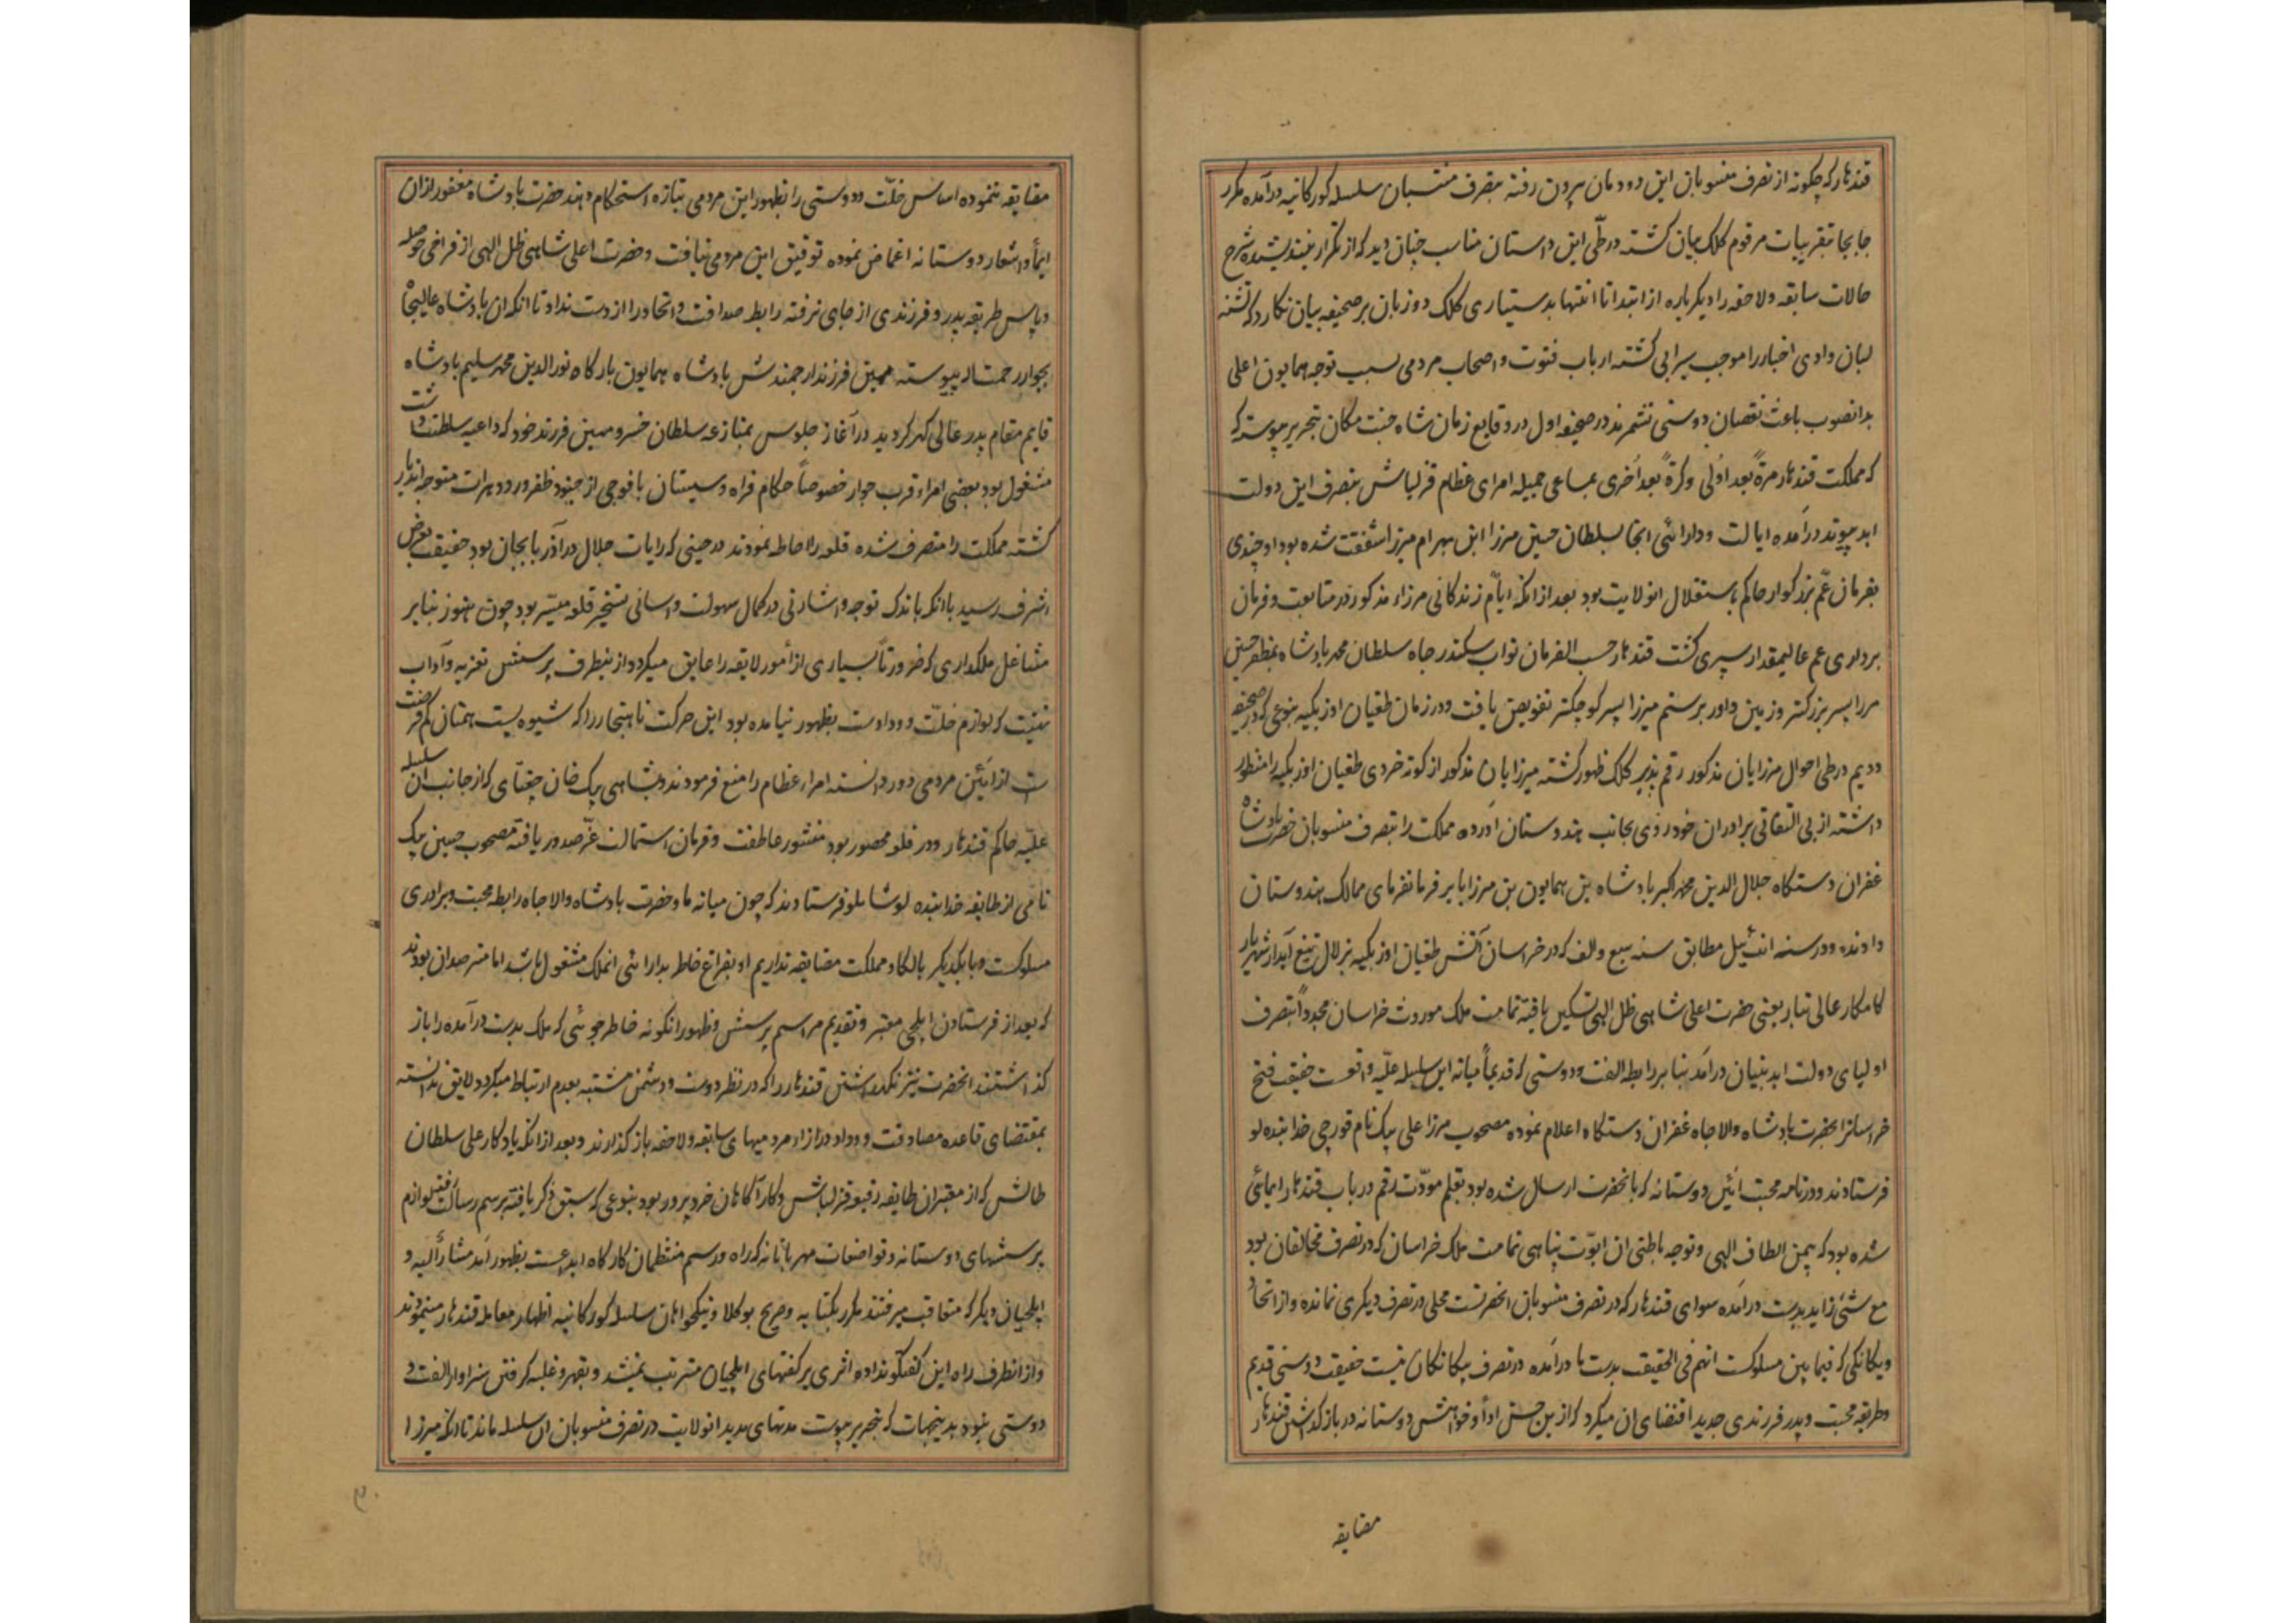 قندهار که چکونه از تصرف منسوبان این دودمان بیرون رفته بتصرف منتسبان سلسله کورکانیه درآمده مکرر
جابجا بتقریبات مرقوم کلک بیان کشته درطی این داستان مناسب چنان دید که از تکرار نیندیشیده شرح
حالات سابقه ولاحقه را دیکرباره از ابتدا تا انتها بدستیاری کلک دوزبان برصحیفه بیان نکارد که تشنه
لبان وادی اخبار را موجب سیرابی کشته ارباب فتوت واصحاب مردمی سبب توجه همایون اعلی
بدانصوب باعث نقصان دوستی نشمرند در صحیفه اول در وقایع زمان شاه جنت مکان بتحریر پیوسته که
که مملکت قندهار مرةً بعد اُولی وکرةً بعد اُخری بمساعی جمیله امرای عظام قزلباش بتصرف این دولت
ابد پیوند درآمده ایالت ودارائی انجا بسلطان حسین مرزا ابن بهرام میرزا شفقت شده بود او چندی
بفرمان عمّ بزرکوار حاکم باستقلال انولایت بود بعد از انکه ایّام زندکانی مرزاء مذکور در متابعت وفرمان
برداری عم عالیمقدار سپری کشت قندهار حسب الفرمان نواب سکندر جاه سلطان محمد پادشاه بمظفر حسین
مرزا پسر بزرکتر وزمین داور برستم میرزا پسر کوچکتر تفویض یافت ودر زمان طغیان اوزبکیه بنوعی که در صحیفه
دویم درطی احوال مرزایان مذکور رقم پذیر کلک ظهور کشته میرزایان مذکور از کوته خردی طغیان اوزبکیه را منظور
داشته از بی التفاتی برادران خود روی بجانب هندوستان آورده مملکت را بتصرف منسوبان حضرت پادشاه
غفران دستکاه جلال الدین محمد اکبر پادشاه بن همایون بن مرزا بابر فرمانفرمای ممالک هندوستان
دادند ودر سنه ائیل مطابق سنه سبع والف که در خراسان آتش طغیان اوزبکیه بزلال تیغ آبدار شهریار
کامکار عالی تبار یعنی حضرت اعلی شاهی ظل الهی تسکین یافته تمامت ملک موروث خراسان مجدداً بتصرف
اولیای دولت ابد بنیان درامد بنابر رابطه الفت ودوستی که قدیماً میانه این سلسله علیّه واقعست حقیقت فتح
خراسانرا بحضرت پادشاه والاجاه غفران دستکاه اعلام نموده مصحوب مرزا علی بیک نام قورچی خدابنده لو
فرستادند ودر نامه محبت ائین دوستانه که بانحضرت ارسال شده بود بقلم مودّت رقم در باب قندهار ایمائی
شده بود که بیمن الطاف الهی وتوجه باطنی ان ابوّت پناهی تمامت ملک خراسان که در تصرف مخالفان بود
مع شئ زاید بدست درآمده سوای قندهار که در تصرف منسوبان انحضرتست محلی در تصرف دیکری نمانده واز اتحاد
ویکانکی که فیمابین مسلوکست انهم فی الحقیقت بدست ما درآمده در تصرف بیکانکان نیست حقیقت دوستی قدیم
وطریقه محبت وپدر فرزندی جدید اقتضای ان میکرد که از بن حسن ادا وخواهش دوستانه در باز کذاشتن قندهار
مضایقه
مضایقه ننموده اساس خلّت ودوستی را بظهور این مردمی بتازه استحکام دهند حضرت پادشاه مغفور از ان
ایما واشعار دوستانه اغماض نموده توفیق این مردمی نیافت وحضرت اعلی شاهی ظل الهی از فراخی حوصله
وپاس طریقه پدر وفرزندی از جای نرفته رابطه صداقت واتحاد را از دست نداد تا انکه ان پادشاه عالیجاه
بجوار رحمت اله پیوسته مهین فرزند ارجمندش پادشاه همایون بارکاه نورالدین محمد سلیم پادشاه
قایم مقام پدر عالی کهر کردید در آغاز جلوس بمنازعه سلطان خسرو مهین فرزند خود که داعیه سلطنت داشت
مشغول بود بعضی امراء قرب جوار خصوصاً حکام فراه وسیستان با فوجی از جنود ظفر ورود هرات متوجه اندیار
کشته مملکت را متصرف شده قلعه را احاطه نمودند در حینی که رایات جلال در آذربایجان بود حقیقت بعرض
اشرف رسید با انکه باندک توجه واشارتی در کمال سهولت واسانی تسخیر قلعه میسّر بود چون هنوز بنابر
مشاغل ملکداری که ضرورتاً بسیاری از امور لایقه را عایق میکردد از ینطرف پرسش تعزیه وآداب
تهنیت که لوازم خلّت وودادست بظهور نیامده بود این حرکت ناهنجار را که شیوه پست همتان کم فرصت
است از آئین مردمی دور دانسته امراء عظام را منع فرمودند وبشاهی بیک خان چغتای که از جانب ان سلسله
علیّه حاکم قندهار ودر قلعه محصور بود منشور عاطفت وفرمان استمالت عزّ صدور یافته مصحوب حسین بیک
نامی از طایفه خدابنده لو شاملو فرستادند که چون میانه ما وحضرت پادشاه والاجاه رابطه محبت وبرادری
مسلوکست وبا یکدیکر بالکا ومملکت مضایقه نداریم او بفراغ خاطر بدارائی انملک مشغول باشد اما مترصد ان بودند
که بعد از فرستادن ایلچی معتبر وتقدیم مراسم پرسش وظهور انکونه خاطرجوئی که ملک بدست درآمده را باز
کذاشتند انحضرت نیز نکاه داشتن قندهار را که در نظر دوست ودشمن مشتبه بعدم ارتباط میکردد لایق ندانسته
بمقتضای قاعده مصادقت ووداد در ازاء مردمیهای سابقه ولاحقه باز کذارند وبعد از انکه یادکار علی سلطان
طالش که از معتبران طایفه رفیعه قزلباش وکار آکاهان خردپرور بود بنوعی که سبق ذکر یافته برسم رسالت رفته لوازم
پرسشهای دوستانه وتواضعات مهربانانه که راه ورسم منتظمان کارکاه ابداعست بظهور آمد مشارٌالیه و
ایلچیان دیکر که متعاقب میرفتند مکرر بکنایه وصریح بوکلا ونیکخواهان سلسله کورکانیه اظهار معامله قندهار مینمودند
واز انطرف راه این کفتکو نداده اثری بر کفتهای ایلچیان مترتب نمیشد وبقهر وغلبه کرفتن سزاوار الفت و
دوستی نبود بدینجهات که بتحریر پیوست مدتهای مدید انولایت در تصرف منسوبان ان سلسله ماند تا انکه میرزا